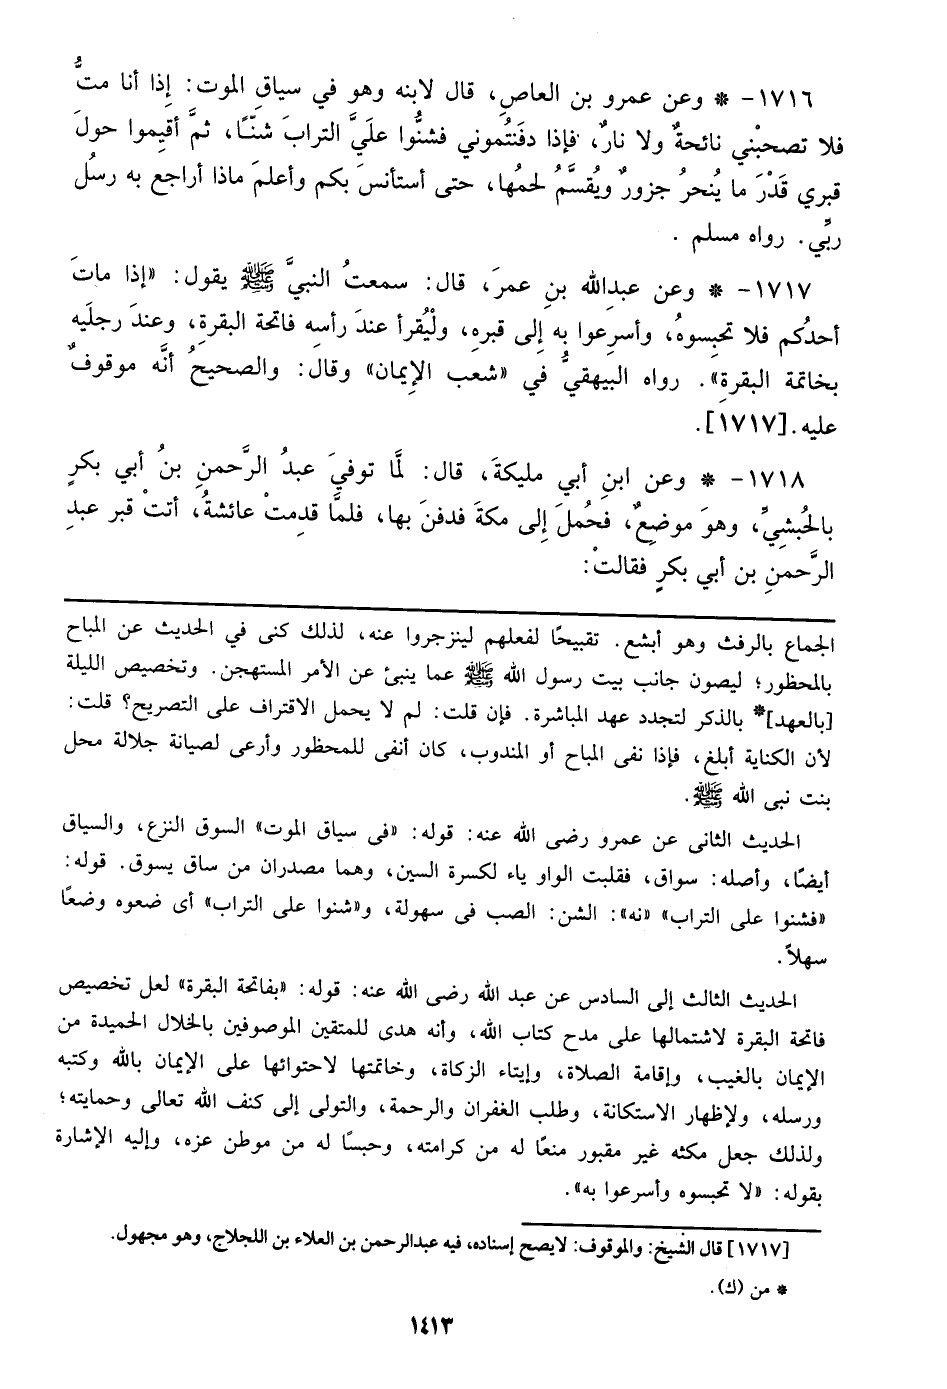 ١٧١٦- * وعن عمرو بن العاصِ، قال لابنه وهو في سياقِ الموت: إِذا أنا متُّ
فلا تصحبْني نائحةٌ ولا نارٌ، فإذا دفَنتُموني فشنُّوا علَيَّ الترابَ شنّـًا، ثمَّ أقيموا حولَ
قبري قَدْرَ ما يُنحرُ جزورٌ ويُقسَّمُ لحمُها، حتى أستأنسَ بكم وأعلمَ ماذا أراجع به رسلُ
ربِّي. رواه مسلم .
١٧١٧- * وعن عبدِالله بنِ عمرَ، قال: سمعتُ النبيَّ ﷺ يقول: «إذا ماتَ
أحدُكم فلا تحبِسوهُ، وأسرِعوا به إِلى قبرِه، ولْيُقرأ عندَ رأسِه فاتحة البقرةِ، وعندَ رجليَه
بخاتمة البقرةِ». رواه البيهقيُّ في «شعب الإِيمان» وقال: والصحيحُ أنَّه موقوفٌ
عليه.[١٧١٧].
١٧١٨- * وعن ابنِ أبي مليكةَ، قال: لَمَّا توفيَ عبدُ الرَّحمنِ بنُ أبي بكرٍ
بالحُبشيِّ، وهوَ موضِعٌ، فحُملَ إِلى مكةَ فدفنَ بها، فلمَّا قدِمتْ عائشةُ، أتتْ قبر عبدِ
الرَّحمنِ بن أبي بكرٍ فقالتْ:
الجماع بالرفث وهو أبشع. تقبيحًا لفعلهم لينزجروا عنه، لذلك كنى في الحديث عن المباح
بالمحظور؛ ليصون جانب بيت رسول الله ﷺ عما ينبئ عن الأمر المستهجن. وتخصيص الليلة
[بالعهد]* بالذكر لتجدد عهد المباشرة. فإن قلت: لم لا يحمل الاقتراف على التصريح؟ قلت:
لأن الكناية أبلغ، فإذا نفى المباح أو المندوب، كان أنفى للمحظور وأرعى لصيانة جلالة محل
بنت نبى الله ﷺ.
الحديث الثانى عن عمرو رضى الله عنه: قوله: «فى سياق الموت» السوق النزع، والسياق
أيضًا، وأصله: سواق، فقلبت الواو ياء لكسرة السين، وهما مصدران من ساق يسوق. قوله:
«فشنوا على التراب» «نه»: الشن: الصب فى سهولة، و«شنوا على التراب» أى ضعوه وضعًا
سهلاً.
الحديث الثالث إلى السادس عن عبد الله رضى الله عنه: قوله: «بفاتحة البقرة» لعل تخصيص
فاتحة البقرة لاشتمالها على مدح كتاب الله، وأنه هدى للمتقين الموصوفين بالخلال الحميدة من
الإيمان بالغيب، وإقامة الصلاة، وإيتاء الزكاة، وخاتمتها لاحتوائها على الإيمان بالله وكتبه
ورسله، ولإظهار الاستكانة، وطلب الغفران والرحمة، والتولى إلى كنف الله تعالى وحمايته؛
ولذلك جعل مكثه غير مقبور منعًا له من كرامته، وحبسًا له من موطن عزه، وإليه الإشارة
بقوله: «لا تحبسوه وأسرعوا به».
[١٧١٧] قال الشيخ: والموقوف: لايصح إسناده، فيه عبدالرحمن بن العلاء بن اللجلاج، وهو مجهول.
* من (ك).
١٤١٣